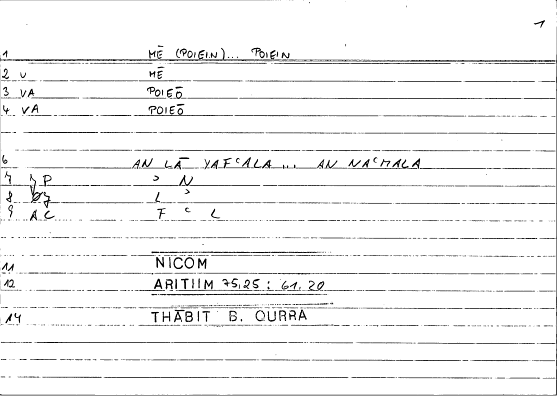 1
1 MĒ (POIEIN)... POIEIN
2 U MĒ
3 VA POIEŌ
4 VA POIEŌ
6 AN LĀ YAFᶜALA ... AN NAᶜMALA
7 P ʾ N
8 L ʾ
9 AC F ᶜ L
11 NICOM
12 ARITIIM 75,25 : 61,20
14 THĀBIT B. QURRA